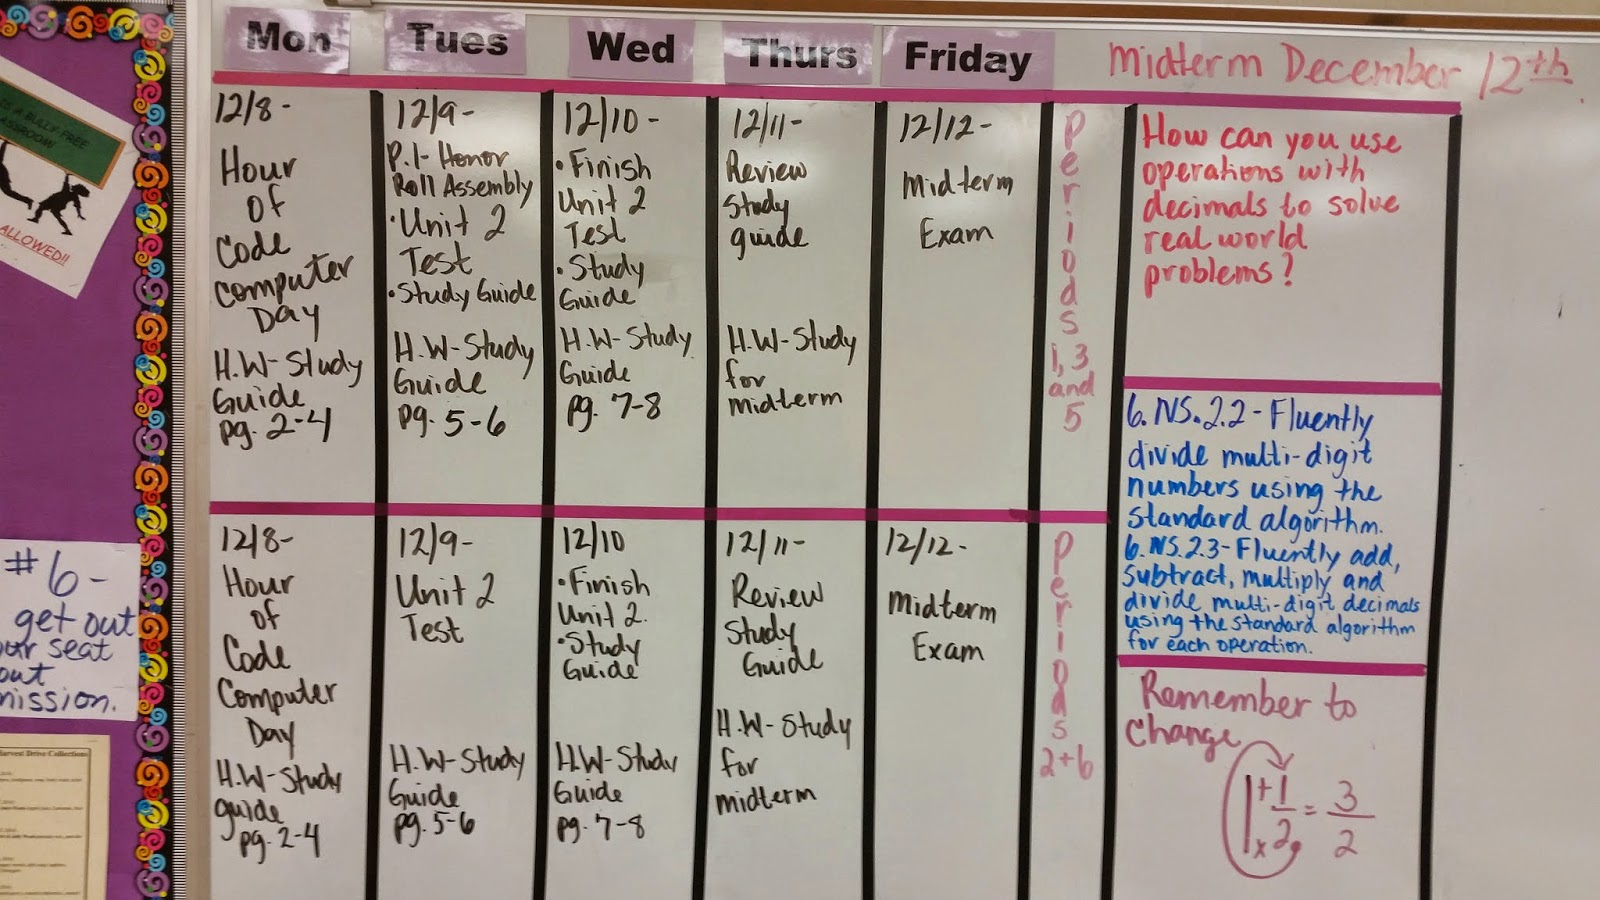 Mon
Tues
Wed
Thurs
Friday
Midterm December 12th.
12/8-
Hour
of
Code
Computer
Day
H.W-Study
Guide
pg. 2-4
12/9-
P.1- Honor
Roll Assembly
• Unit 2
Test
• Study Guide
H.W-Study
Guide
pg. 5-6
12/10-
• Finish
Unit 2
Test
• Study
Guide
H.W-Study
Guide
pg. 7-8
12/11-
Review
Study
guide
H.W-Study
for
midterm
12/12-
Midterm
Exam
Periods
1, 3
and
5
How can you use
operations with
decimals to solve
real world
problems?
6.NS.2.2-Fluently
divide multi-digit
numbers using the
standard algorithm.
6.NS.2.3-Fluently add,
subtract, multiply and
divide multi-digit decimals
using the standard algorithm
for each operation.
Remember to
change
1 + 1/2 = 3/2
x
12/8-
Hour
of
Code
Computer
Day
H.W-Study
guide
pg. 2-4
12/9-
Unit 2
Test
H.W-Study
Guide
pg. 5-6
12/10
• Finish
Unit 2.
• Study
Guide
H.W-Study
Guide
pg. 7-8
12/11-
Review
Study
Guide
H.W-Study
for
midterm
12/12-
Midterm
Exam
Periods
2+6
A BULLY FREE
ALLOWED!!
#6-
get out
seat
out
Harvest Drive Collections